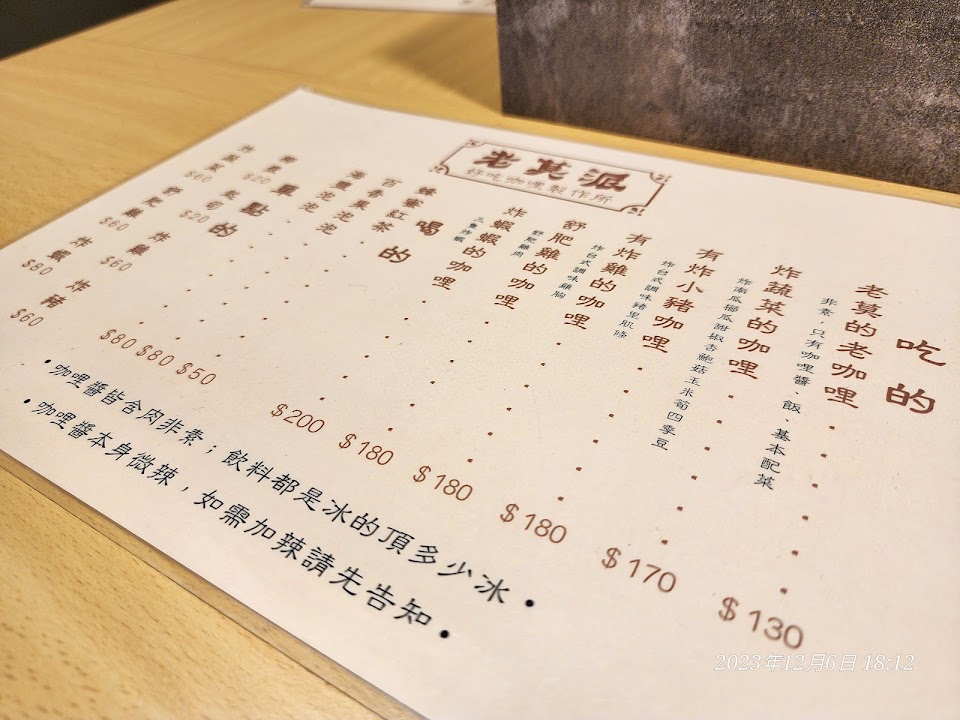 老莫派
好吃咖哩製作所
吃的
老莫的老咖哩 $130
非素，只有咖哩醬、飯、基本配菜
炸蔬菜的咖哩 $170
炸南瓜櫛瓜甜椒杏鮑菇玉米筍四季豆
有炸小豬咖哩 $180
炸台式調味豬里肌條
有炸雞的咖哩 $180
炸台式調味雞胸
舒肥雞的咖哩 $180
舒肥雞肉
炸蝦蝦的咖哩 $200
三隻炸蝦
喝的
蜂蜜紅茶 $50
百香果泡泡 $80
泡泡 $80
單點的
$20
起司 $20
炸蔬菜 $60
炸雞 $60
舒肥雞 $60
炸豬 $60
炸蝦 $80
•咖哩醬皆含肉非素；飲料都是冰的頂多少冰•
•咖哩醬本身微辣，如需加辣請先告知•
2023年12月6日 18:12